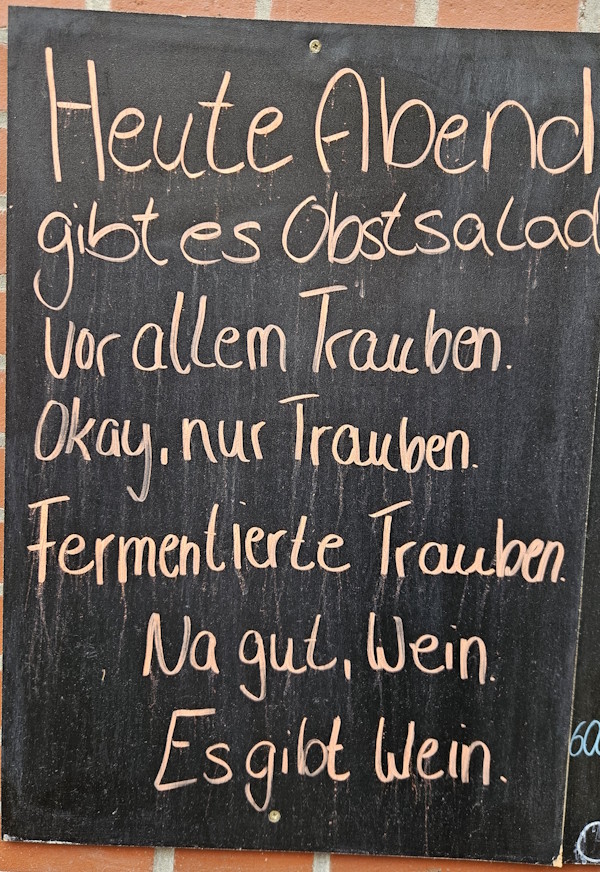 Heute Abend
gibt es Obstsalad
Vor allem Trauben.
Okay, nur Trauben.
Fermentierte Trauben.
Na gut, Wein.
Es gibt Wein.